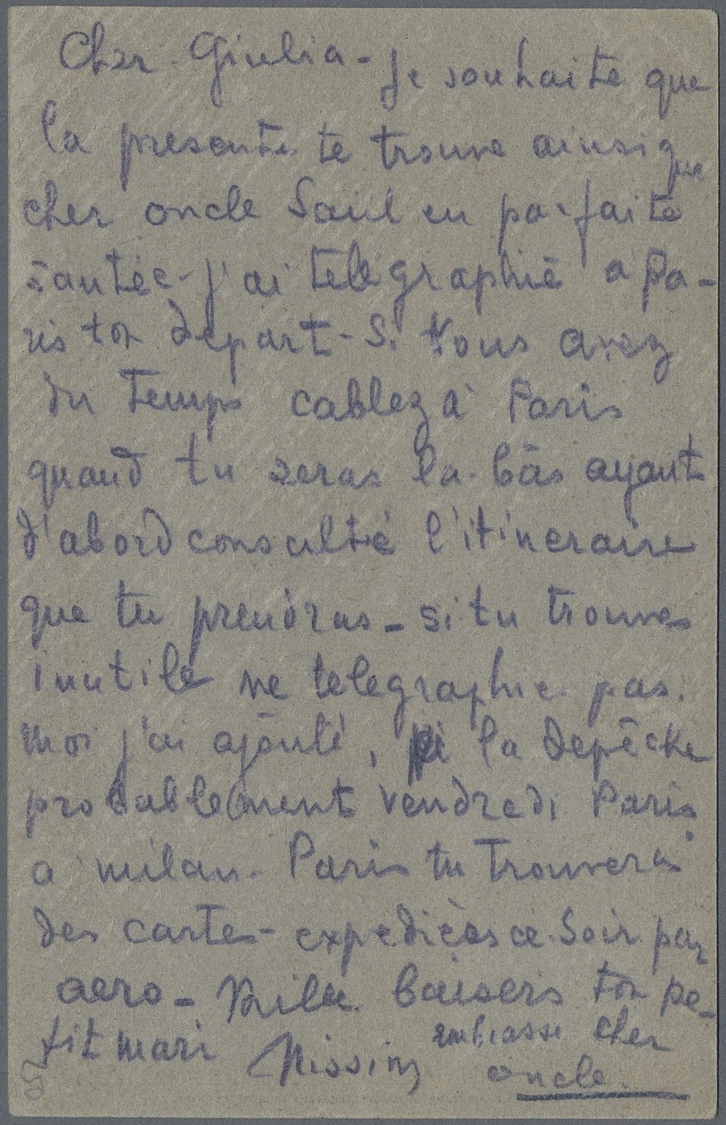 Cher Giulia - Je souhaite que
la presente te trouve ainsi que
cher oncle Saul en parfaite
santée - j'ai telegraphié à Pa-
ris ton depart - Si Vous avez
du temps cablez à Paris
quand tu seras la-bâs ayant
d'abord consulté l'itineraire
que tu prendras - si tu trouves
inutile ne telegraphie pas.
moi j'ai ajouté, la depêche
probablement vendredi Paris
a milan - Paris tu trouveras
des cartes - expediées ce Soir par
aero - Mille baisers ton pe-
tit mari Nissim embrasse cher
oncle.